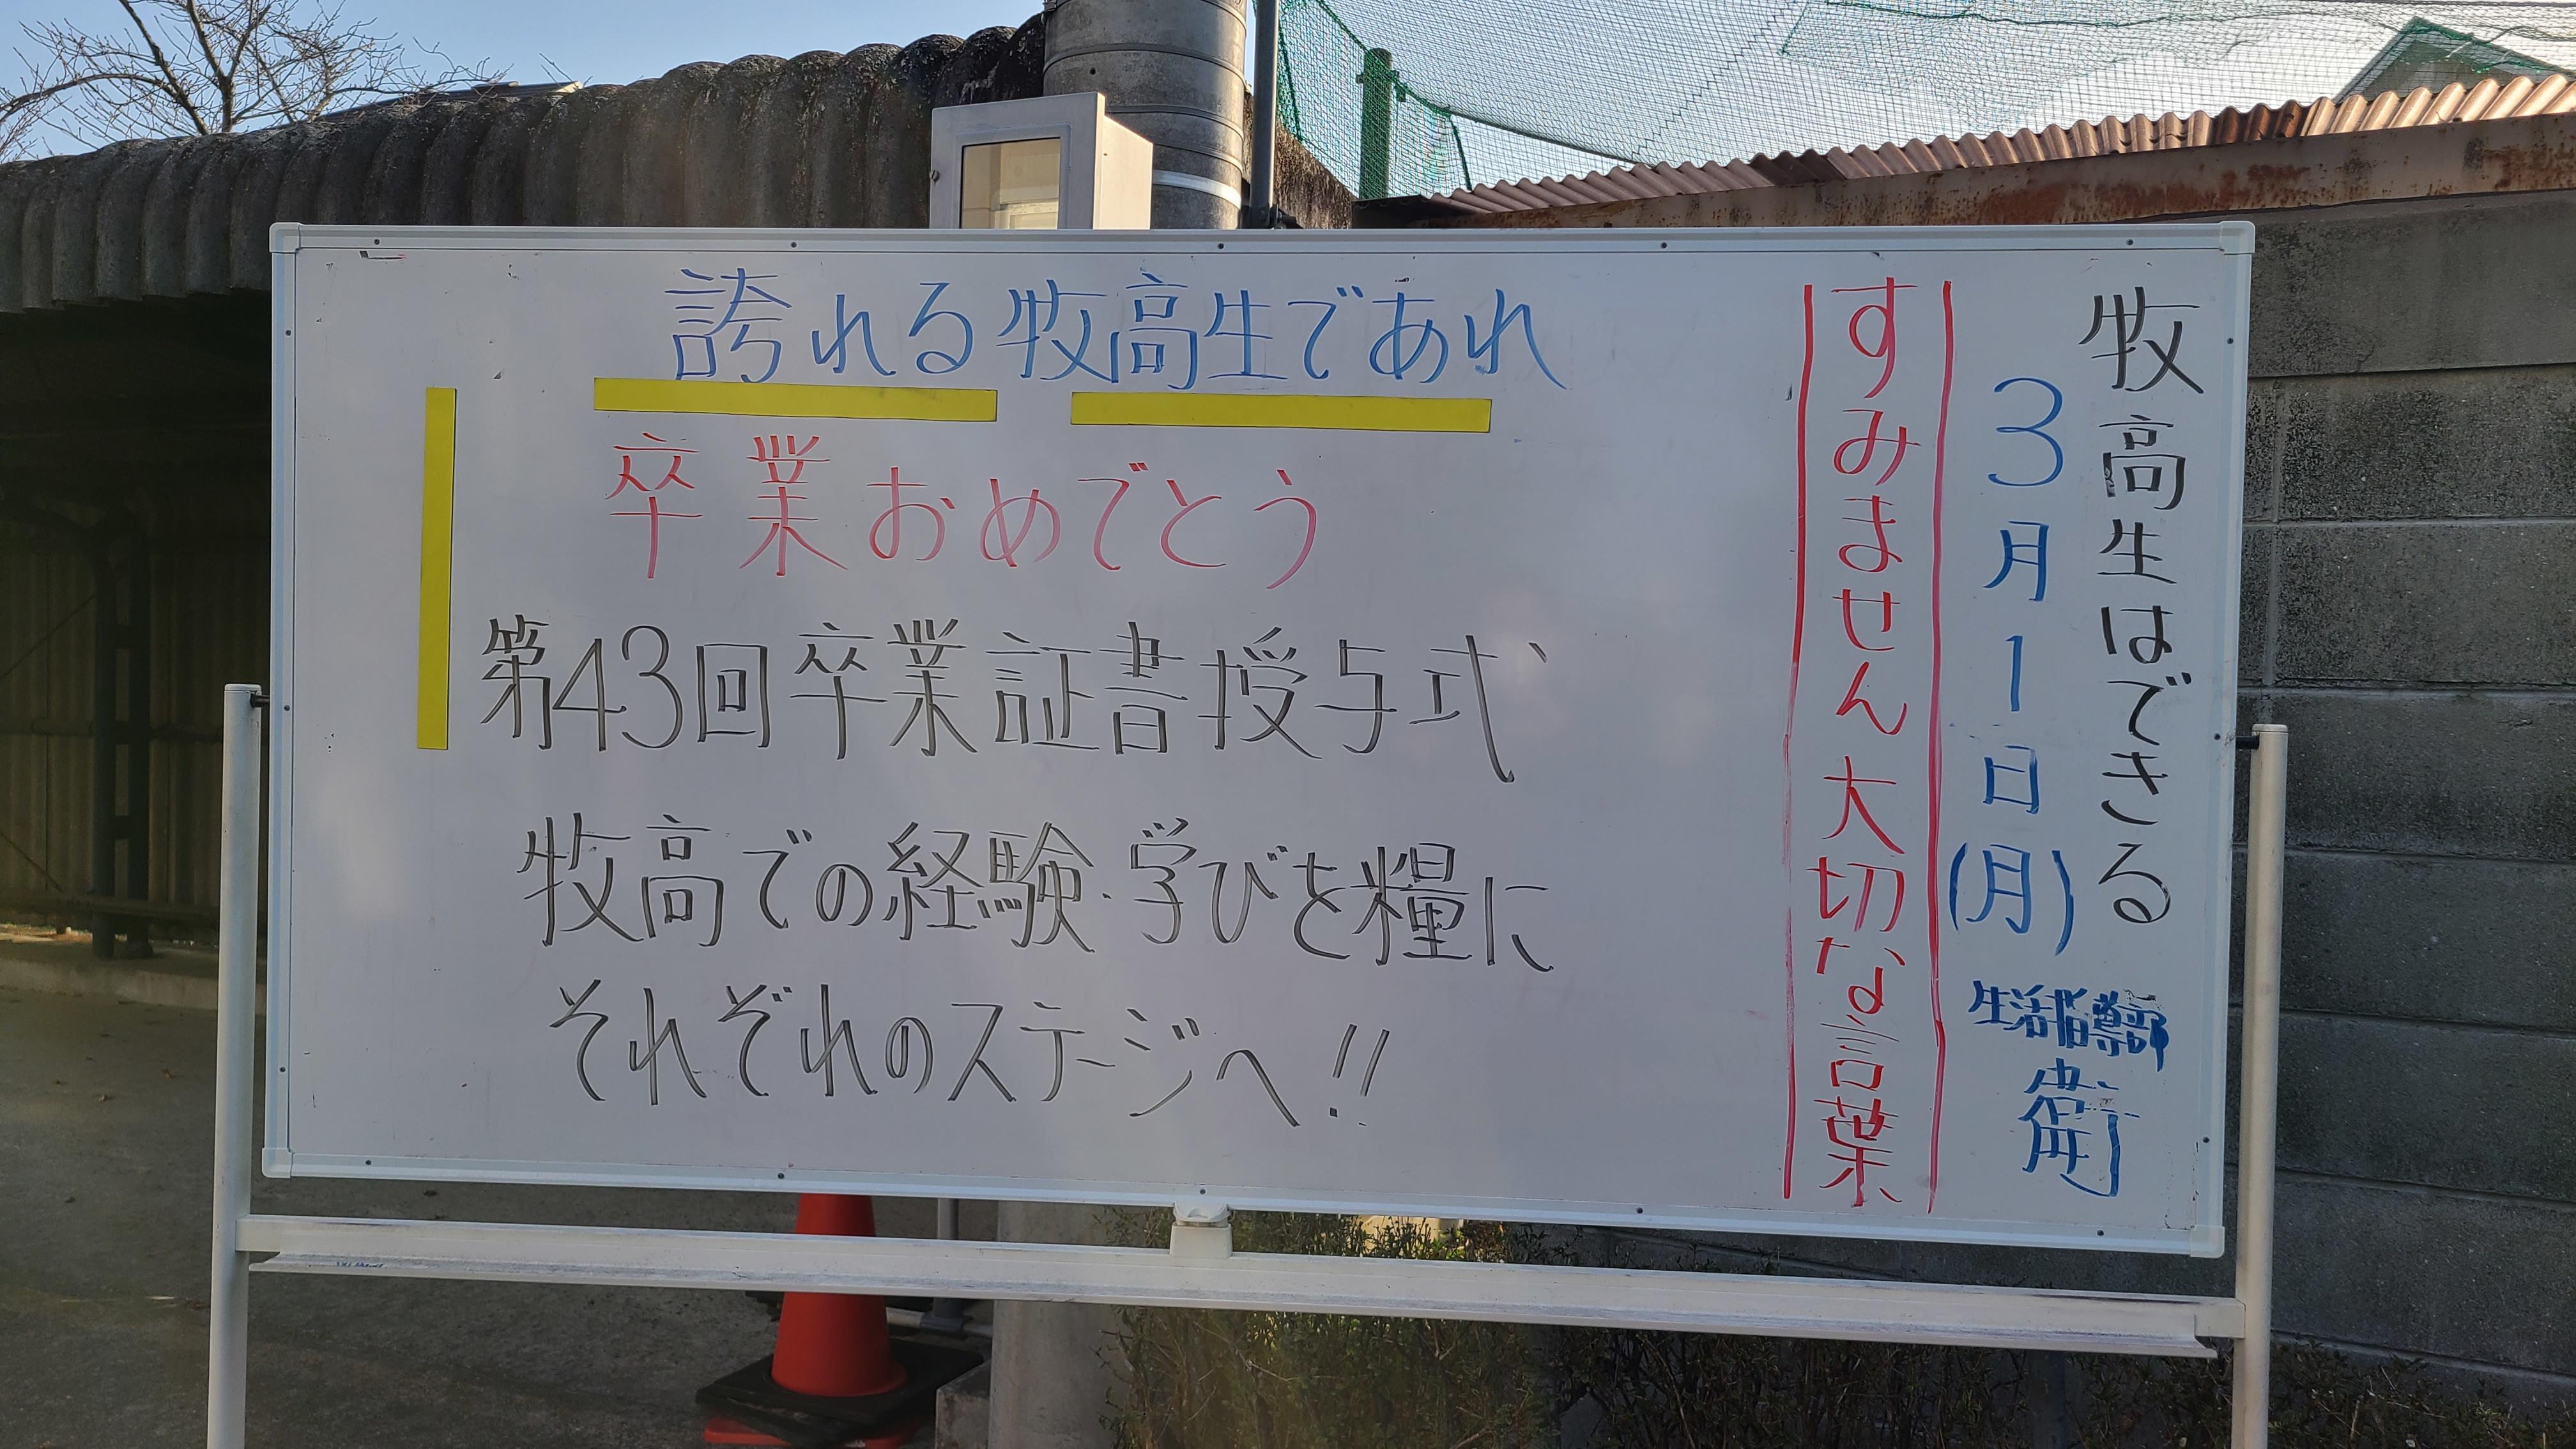 牧高生はできる
3月1日(月)
生活指導部
衛
すみません大切な言葉
誇れる牧高生であれ
卒業おめでとう
第43回卒業証書授与式
牧高での経験・学びを糧に
それぞれのステージへ!!